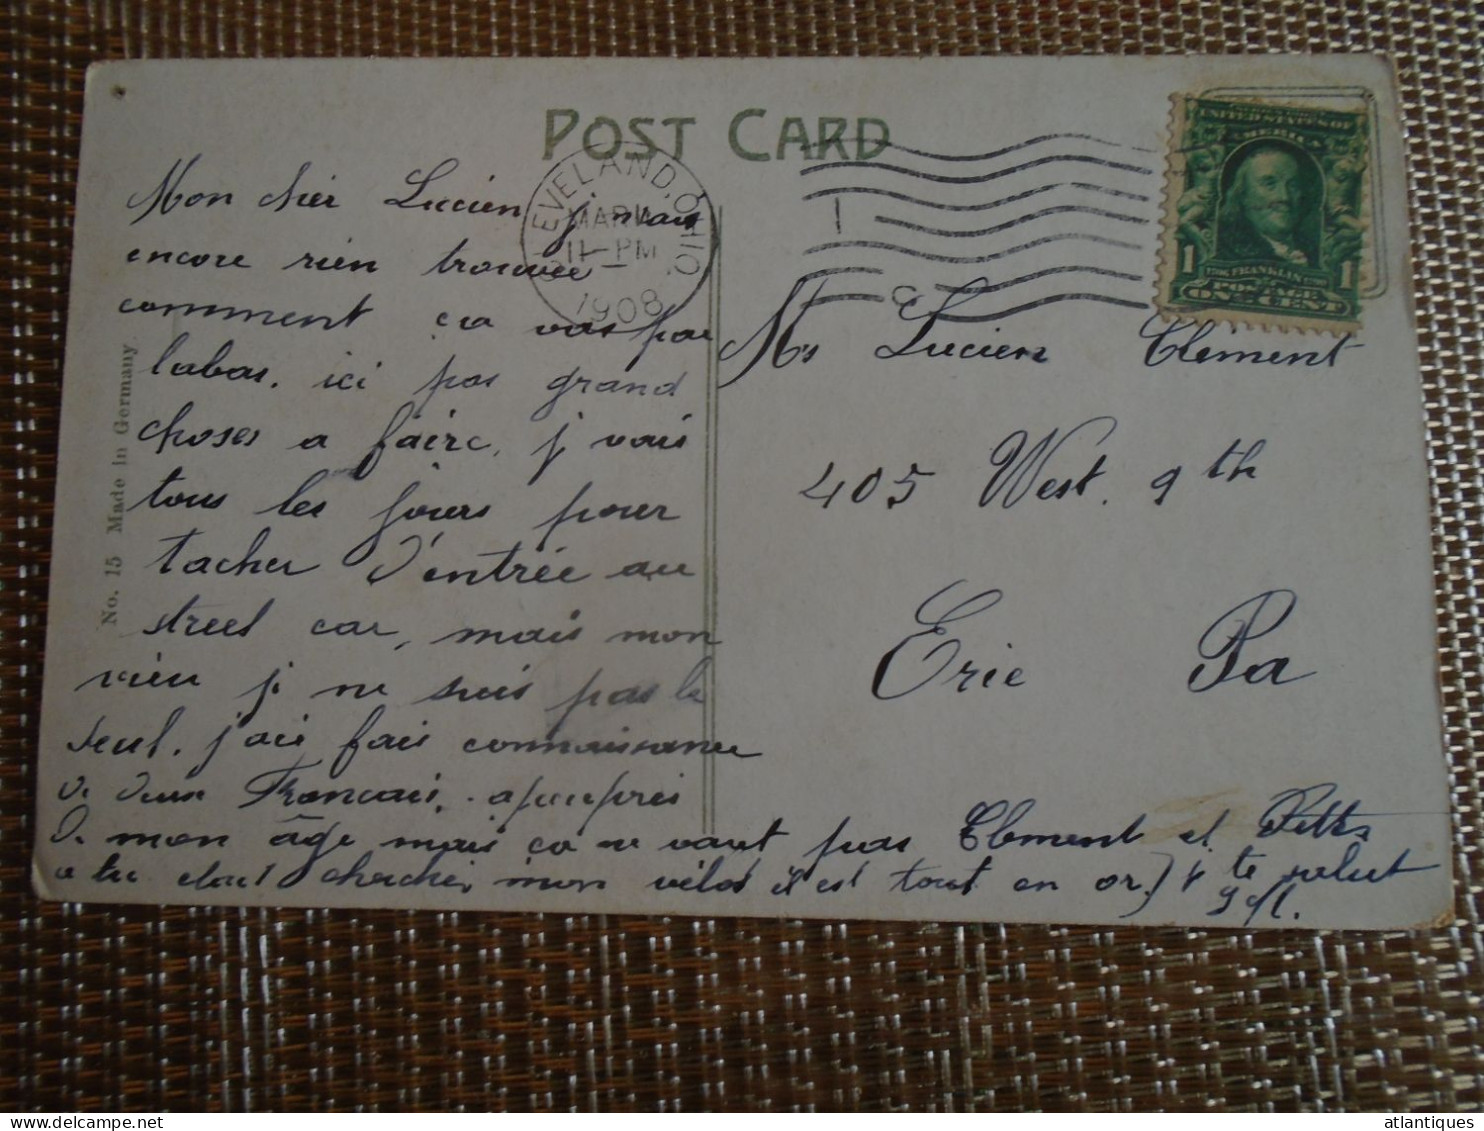 POST CARD
CLEVELAND, OHIO.
MAR
11-PM
1908
UNITED STATES OF
AMERICA
FRANKLIN
1 1
POSTAGE
ONE CENT
No. 15 Made in Germany
Mon chér Lucien j'mais
encore rien trouvée
comment ça vas par
labas. ici pas grand
choses a faire, j vais
tous les jours pour
tacher d'entrée au
street car, mais mon
vieu j ne suis pas le
seul. j'ais fais connaissance
de deux Francais. apeuprés
de mon âge mais ça ne vaut pas Clement et
chercher mon vélos il est tout en or) te salut
Mr Lucien Clement
405 West. 9th
Erie Pa
atlantiques